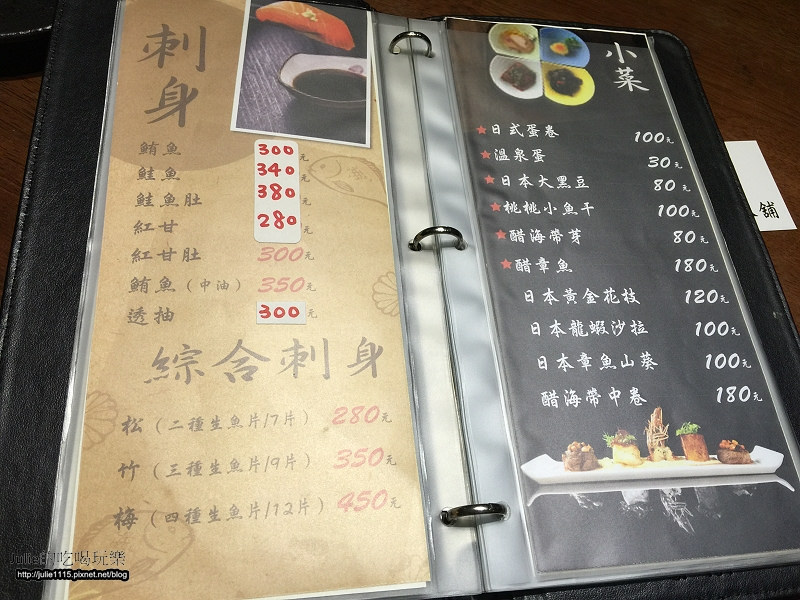 刺身
鮪魚 300元
鮭魚 340元
鮭魚肚 380元
紅甘 280元
紅甘肚 300元
鮪魚(中油) 350元
透抽 300元
綜合刺身
松(二種生魚片/7片) 280元
竹(三種生魚片/9片) 350元
梅(四種生魚片/12片) 450元
小菜
★日式蛋卷 100元
★溫泉蛋 30元
★日本大黑豆 80元
★桃桃小魚干 100元
★醋海帶芽 80元
★醋章魚 180元
日本黃金花枝 120元
日本龍蝦沙拉 100元
日本章魚山葵 100元
醋海帶中卷 180元
舖
Julie的吃喝玩樂
http://julie1115.pixnet.net/blog